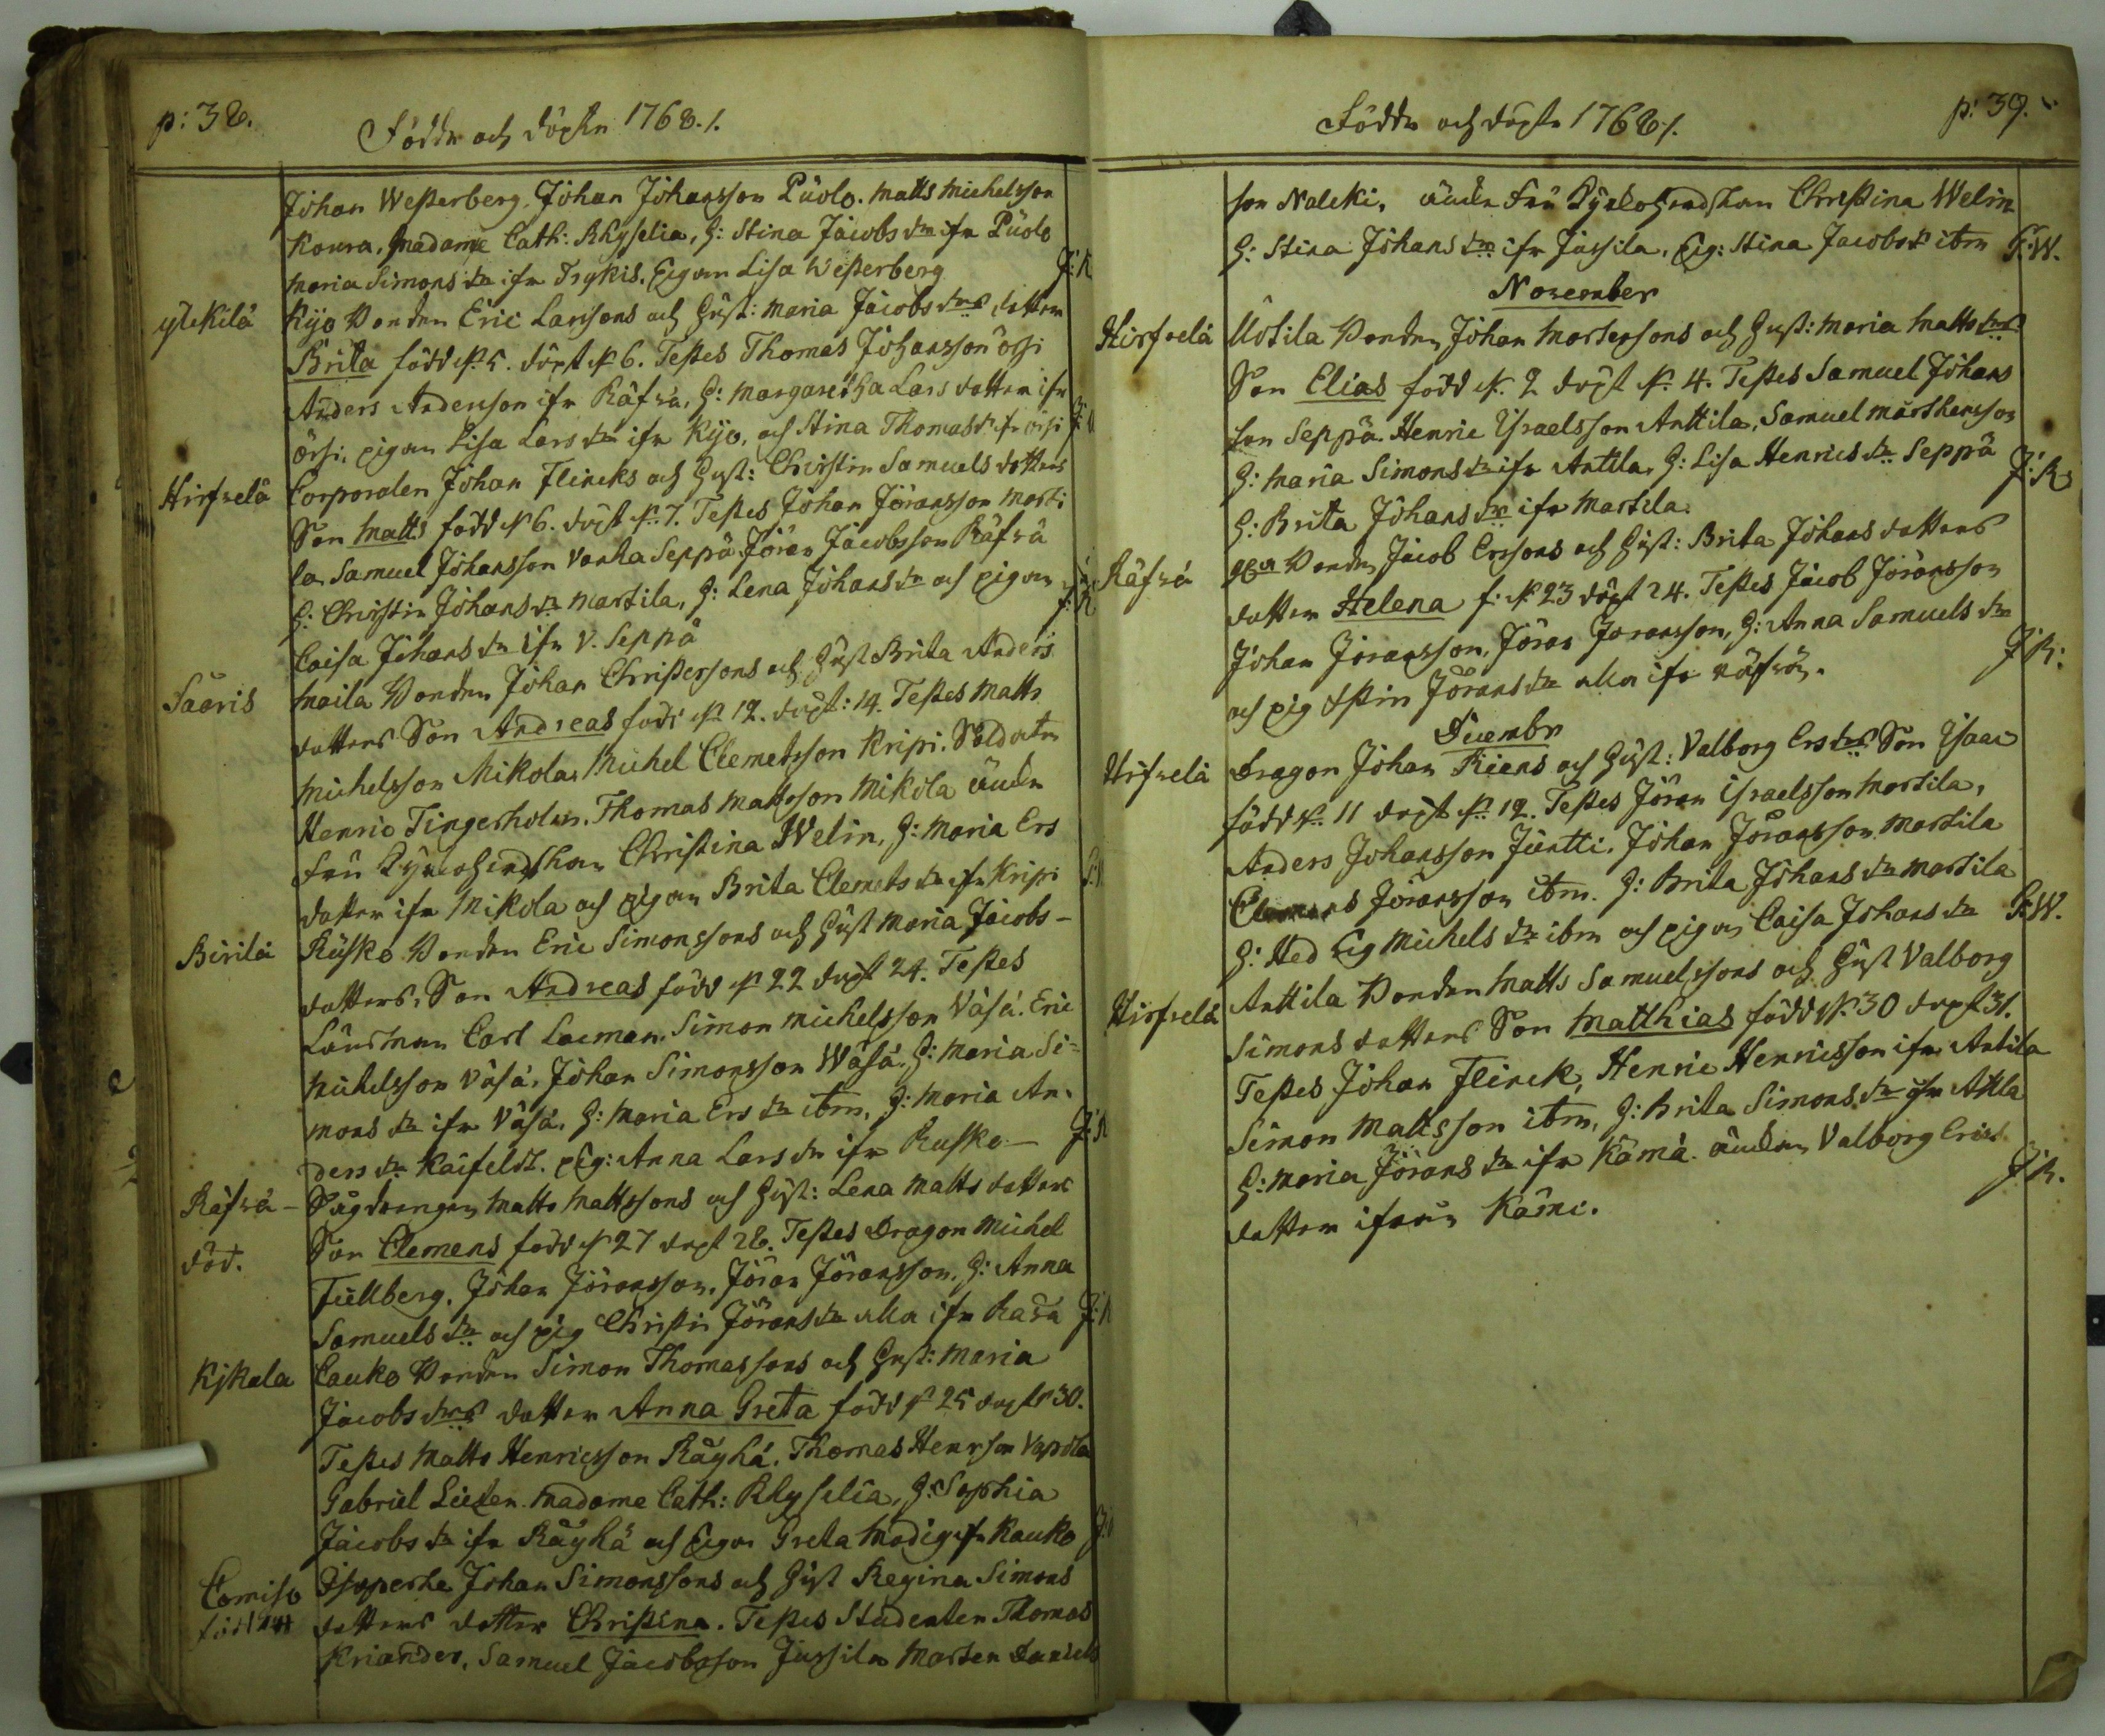 p: 38.
Födde och döpte 1768./.
Johan Westerberg, Johan Johansson Puolo. Matts Michelsson
Koura, Madame Cath: Rhyselia, H: Stina Jacobs dr ifr Puolo
Maria Simons dr ifr Trykis. Pigan Lisa Westerberg J:R
yleKilä Kyö Bonden Eric Larssons och Hust: Maria Jacobs drs dotter
Brita född d 5. döpt d 6. Testes Thomas Johansson örsi
Anders Andersson ifr Räfvä, H: Margaretha Lars dotter ifr
örsi, pigan Lisa Lars dr ifr Kyö, och Stina Thomas dr ifr örsi
Hirfvelä Corporalen Johan Flincks och Hust: Christin Samuels dotters
Son Matts född d 6. döpt d 7. Testes Johan Jöransson Marti
la, Samuel Johansson Vanha Seppä, Jöran Jacobsson Räfvä
H: Christin Johans dr Martila, H: Lena Johans dr och pigan
Caisa Johans dr ifr V. Seppä J:R
Saaris Maila Bonden Johan Christerssons och Hust Brita Anders
dotters Son Andreas född d 12. döpt: 14. Testes Matts
Michelsson Mikola, Michel Clemetsson Kripi. Soldaten
Henric Tingerholm, Thomas Mattsson Mikola
Fru Kyrkoherdskan Christina Welin, H: Maria Ers
dotter ifr Mikola och Pigan Brita Clemets dr ifr Kripi
Birilä Rusko Bonden Eric Simonssons och Hust Maria Jacobs-
dotters, Son Andreas född d 22 döpt 24. Testes
Länsman Carl Lacman, Simon Michelsson Väsä. Eric
Michelsson Väsä, Johan Simonsson Wäsä, H: Maria Si=
mons dr ifr Väsä, H: Maria Ers dr ibm, H: Maria An-
ders dr Kaifeldt. pig: Anna Lars dr ifr Rusko - J:R
Räfvä - Sågdrengen Matts Mattssons och Hust: Lena Matts dotters
död. Son Clemens född d 27 döpt 28. Testes Dragon Michel
Fullberg, Johan Jöransson, Jöran Jöransson, H: Anna
Samuels dr och pig Christin Jörans dr alla ifr Rava J:R
Kjkala Cauko Bonden Simon Thomassons och Hust: Maria
Jacobs drs dotter Anna Greta född d 25 döpt d 30.
Testes Matts Henricsson Räyhä. Thomas Henrsson Vapola
Gabriel Linden. Madame Cath: Rhyselia, H: Sophia
Jacobs dr ifr Räyhä och Pigan Greta Modig ifr Kauko
Comiso Isoperhe Johan Simonssons och Hust Regina Simons
dotters dotter Christina. Testes Studenten Thomas
Kriander, Samuel Jacobsson Jussila Marten Daniels
Födde och döpte 1768./.
p: 39.
son Naleki, Fru Kyrkoherdskan Christina Welin
H: Stina Johans dr ifr Jussila, Pig: Stina Jacobs dr ibm S:W.
November
Hirfvelä Uotila Bonden Johan Martenssons och Hust: Maria Matts drs
Son Elias född d. 2 döpt d. 4. Testes Samuel Johans
son Seppä. Henric Israelsson Anttila, Samuel Marthensson
H: Maria Simons dr ifr Antila, H: Lisa Henrics dr Seppä
H: Brita Johans dr ifr Martila. J:R
Räfvä Bonden Jacob Erssons och Hust: Brita Johans dotters
dotter Helena f: d. 23 döpt 24. Testes Jacob Jöransson
Johan Jöransson, Jöran Joransson, H: Anna Samuels dr
och pig Stin Jörans dr alla ifr räfvä. J:R:
December
Hirfvelä Dragon Johan Riens och Hust: Valborg Ers drs Son Isaac
född d. 11 döpt d. 12. Testes Jöran Israelsson Martila,
Anders Johansson Juntti, Johan Jöransson Martila
Clemens Jöransson ibm. H: Brita Johans dr Martila
H: Hed vig Michels dr ibm och pigan Caisa Johans dr S:W.
Hirfvelä Anttila Bonden Matts Samuelssons och Hust Valborg
Simons dotters Son Matthias född d. 30 döpt 31.
Testes Johan Flinck, Henric Henricsson ifr Antila
Simon Mattsson ibm, H: Brita Simons dr ifr Attla
H: Maria Jörans dr ifr Kämä. Valborg Erics
dotter ifrån Kämi. J:R.